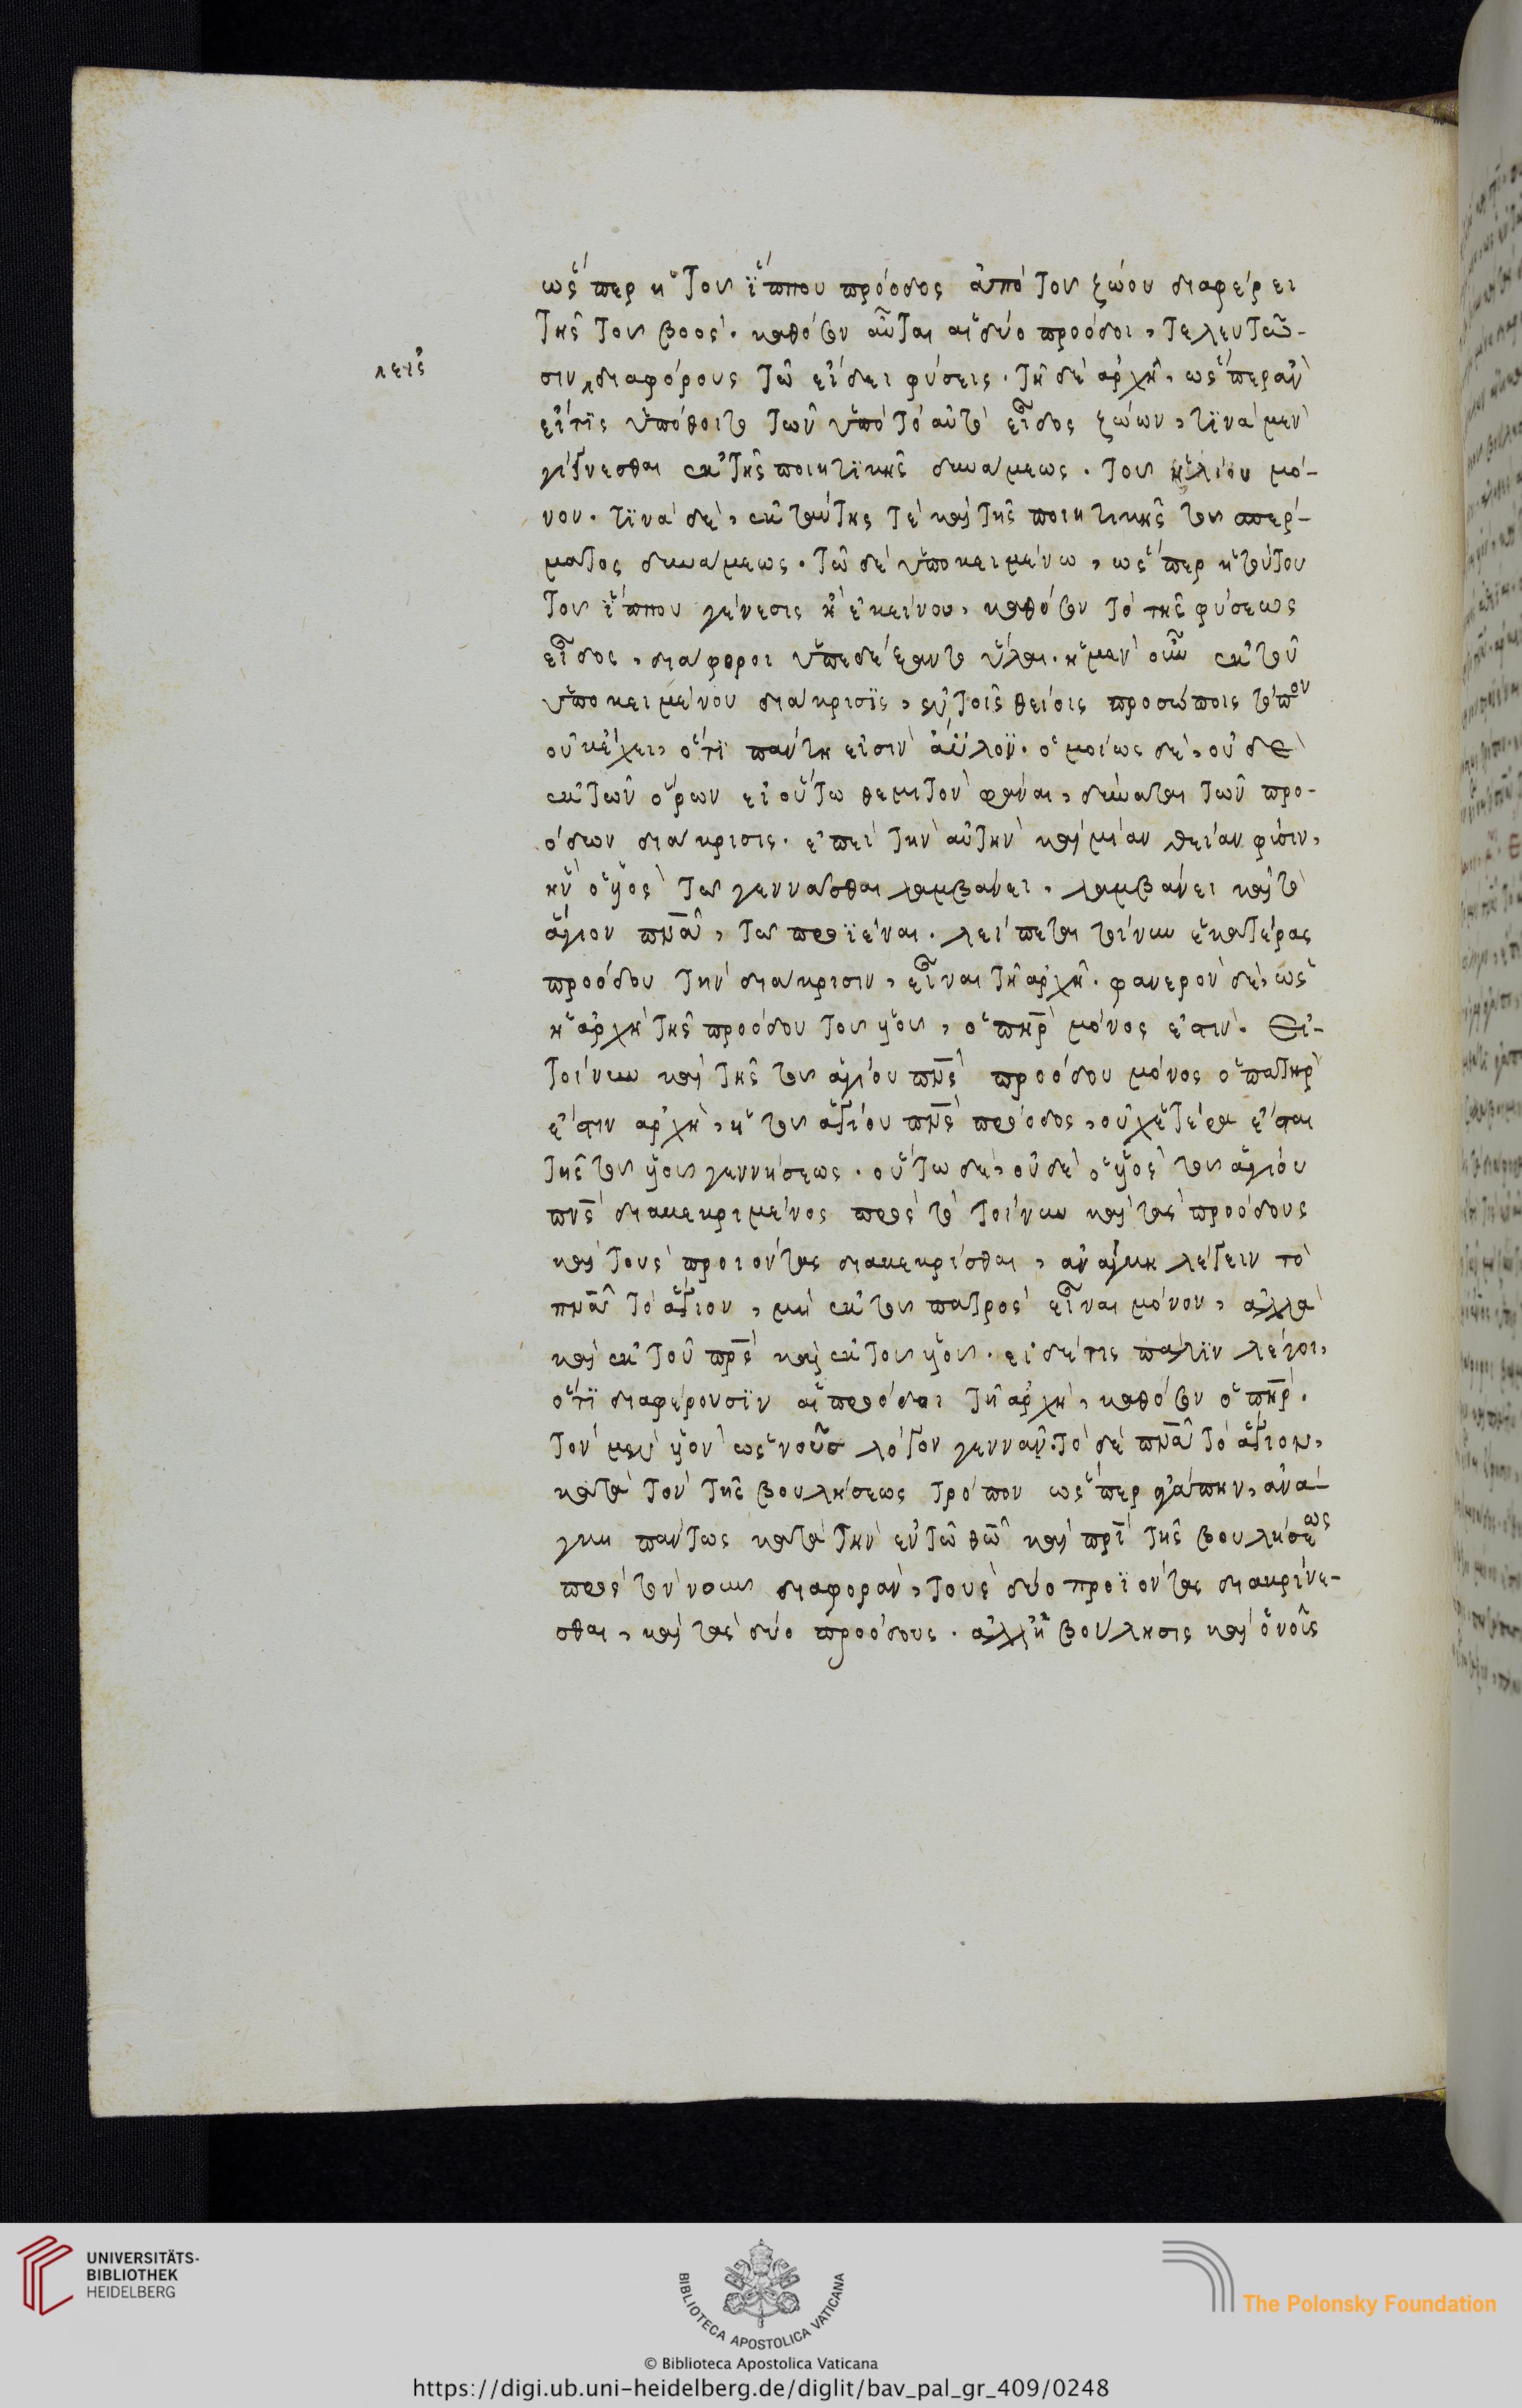 ὥσπερ ἡ τοῦ ἵππου πρόοδος ἀπὸ τοῦ ζώου διαφέρει
τῆς τοῦ βοός. καθόσον αὗται αἱ δύο πρόοδοι, τελευτῶ-
σιν διαφόρους τῷ εἴδει φύσεις. τῇ δὲ ἀρχῇ, ὥσπερ ἂν
λ εἰς
εἴτις ὑπόθοιτο τῶν ὑπὸ τὸ αὐτὸ εἶδος ζώων, τινὰ μὲν
γίγνεσθαι ἐκ τῆς ποιητικῆς δυνάμεως. τοῦ ἡλίου μό-
νον. τινὰ δὲ, ἐκ ταύτης τὲ καὶ τῆς ποιητικῆς τοῦ σπέρ-
ματος δυνάμεως. τῷ δὲ ὑποκειμένω, ὥσπερ ἡ τούτου
τοῦ ἵππου γένεσις ἢ ἐκείνου, καθόσον τὸ τῆς φύσεως
εἶδος, διάφοροι ὑπεδέξαντο ὗλαι. ἡ μὲν οὖν ἐκ τοῦ
ὑποκειμένου διάκρισις, ἐν τοῖς θείοις προσώποις τόπον
οὐκ ἔχει, ὅτι πάντη εἰσὶν ἄϋλοι. ὁμοίως δὲ, οὐδὲ
ἐκ τῶν ὅρων εἰ οὕτω θεμιτὸν φάναι, δύναται τῶν προ-
όδων διάκρισις. ἐπεὶ τὴν αὐτὴν καὶ μίαν θείαν φύσιν,
ἣν ὁ υἱὸς τῷ γεννᾶσθαι λαμβάνει, λαμβάνει καὶ τὸ
ἅγιον πνα, τῷ προϊέναι. λείπεται τοίνυν ἑκατέρας
προόδου τὴν διάκρισιν, εἶναι τῇ ἀρχῇ. φανερὸν δὲ, ὡς
ἡ ἀρχὴ τῆς προόδου τοῦ υἱοῦ, ὁ πηρ μόνος ἐστίν. Εἰ
τοίνυν καὶ τῆς τοῦ ἁγίου πνς προόδου μόνος ὁ πατὴρ
ἐστιν ἀρχὴ, ἡ τοῦ ἁγίου πνς πρόοδος, οὐχ ἑτέρα ἔσται
τῆς τοῦ υἱοῦ γεννήσεως. οὕτω δὲ, οὐδὲ ὁ υἱὸς τοῦ ἁγίου
πνς διακεκριμένος πρὸς τὸ τοίνυν καὶ τὰς προόδους
καὶ τοὺς προιόντας διακεκρίσθαι, ἀνάγκη λέγειν τὸ
πνα τὸ ἅγιον, μὴ ἐκ τοῦ πατρὸς εἶναι μόνον, ἀλλὰ
καὶ ἐκ τοῦ πρς καὶ ἐκ τοῦ υἱοῦ. εἰ δέ τις πάλιν λέγοι,
ὅτι διαφέρουσιν αἱ πρόοδοι τῇ ἀρχῇ, καθόσον ὁ πηρ.
τὸν μὲν υἱὸν ὡς νοῦς λόγον γεννᾶν. τὸ δὲ πνα τὸ ἅγιον,
κατὰ τὸν τῆς βουλήσεως τρόπον ὥσπερ ἀγάπην, ἀνά-
γκη πάντως κατὰ τὴν ἐν τῷ θω καὶ πρι τῆς βουλήσεως
πρὸς τὸν νοῦν διαφορὰν, τοὺς δύο προϊόντας διακρίνε-
σθαι, καὶ τὰς δύο προόδους. ἀλλ' ἡ βούλησις καὶ ὁ νοῦς
UNIVERSITÄTS-
BIBLIOTHEK
HEIDELBERG
BIBLIOTECA APOSTOLICA VATICANA
The Polonsky Foundation
© Biblioteca Apostolica Vaticana
https://digi.ub.uni-heidelberg.de/diglit/bav_pal_gr_409/0248